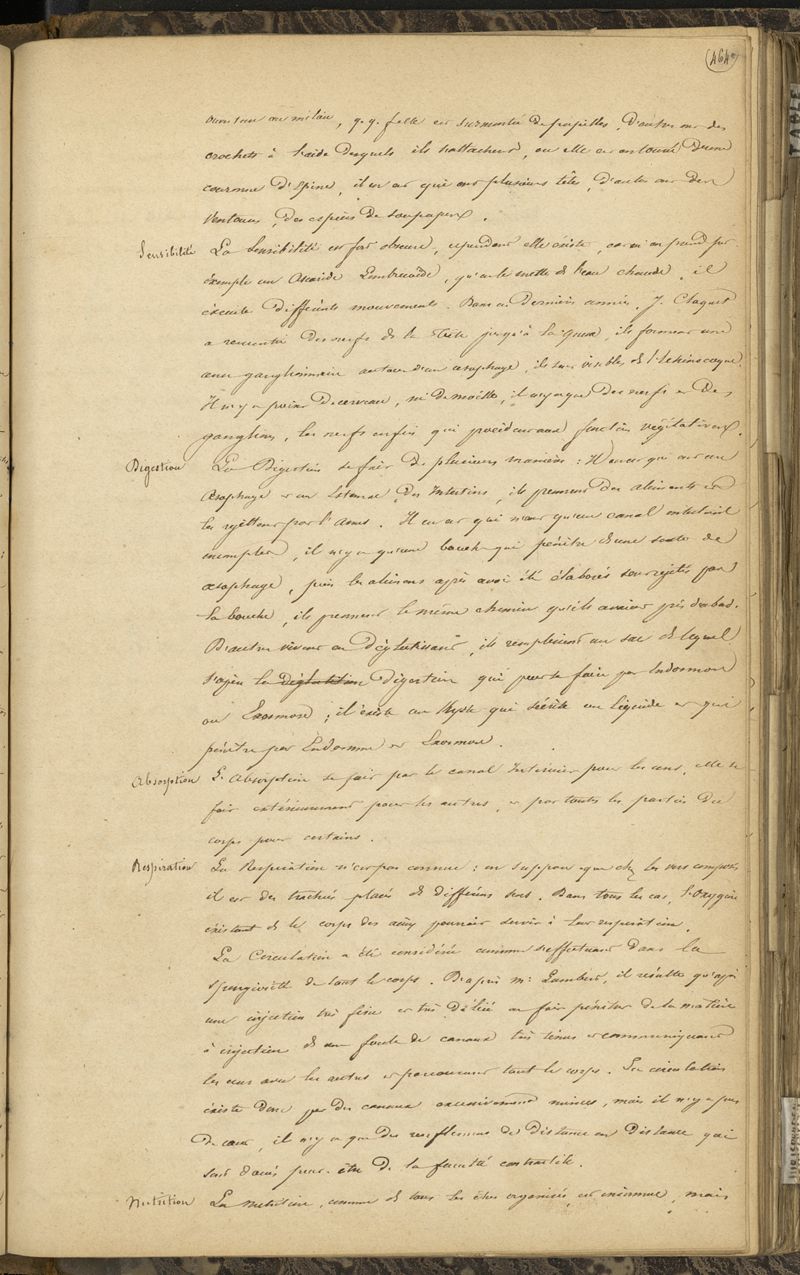 (464)
ouverture au milieu, q.q. f. elle est surmontée de papilles, d'autres ont des
crochets à l'aide desquels ils s'attachent, ou elle est entourée d'une
couronne d'épines, il en est qui ont plusieurs têtes, d'autres ont des
ventouses, des espèces de soupapes.
Sensibilité La Sensibilité est fort obscure, cependant elle existe, car si on prend par
exemple un Ascaride Lombricoïde, qu'on le mette ds l'eau chaude, il
exécute différents mouvements. Dans ces dernières années, J. Cloquet
a rencontré des nerfs de la tête jusqu'à la queue, ils forment un
anneau ganglionnaire autour d'un œsophage, ils sont visibles ds l'échinocoque.
Il n'y a point de cerveau, ni de moelle, il n'y a que des nerfs et des
ganglions, les nerfs enfin qui président aux fonctions végétatives.
Digestion La Digestion se fait de plusieurs manières : Il en est qui ont un
œsophage et un Estomac, des Intestins, ils prennent des aliments et
les rejettent par l'anus. Il en est qui n'ont qu'un canal intestinal
incomplet, il n'y a qu'une bouche qui pénètre ds une sorte de
œsophage, puis les aliments après avoir été élaborés sont rejetés par
la bouche, ils prennent le même chemin qu'ils avaient pris d'abord.
D'autres vivent en déglutissant, ils remplissent un sac ds lequel
s'opère la déglutition Digestion qui peut se faire par Endosmose
ou Exosmose; il existe un Kyste qui sécrète un liquide et qui
pénètre par Endosmose et Exosmose.
Absorption L'Absorption se fait par le canal Intestinal pour les uns, elle se
fait extérieurement pour les autres, et par toutes les parties du
corps pour certains.
Respiration La Respiration n'est pas connue : on suppose que chez les vers composés
il est des trachées placées ds différens sens. Dans tous les cas, l'oxygène
existant ds le corps des aux pourrait servir à leur respiration.
La Circulation a été considérée comme s'effectuant dans la
spongiosité de tout le corps. D'après Mr Lambert, il résulte qu'après
une injection très fine et très déliée on fait pénétrer de la matière
à injection ds une foule de canaux très ténus et communiquant
les uns avec les autres et parcourant tout le corps. La circulation
existe donc par des canaux excessivement minces, mais il n'y a pas
de cœur, il n'y a que des renflements de distance en distance qui
sont doués peut-être de la faculté contractile.
Nutrition La nutrition, comme ds tous les êtres organisés, est inconnue, mais